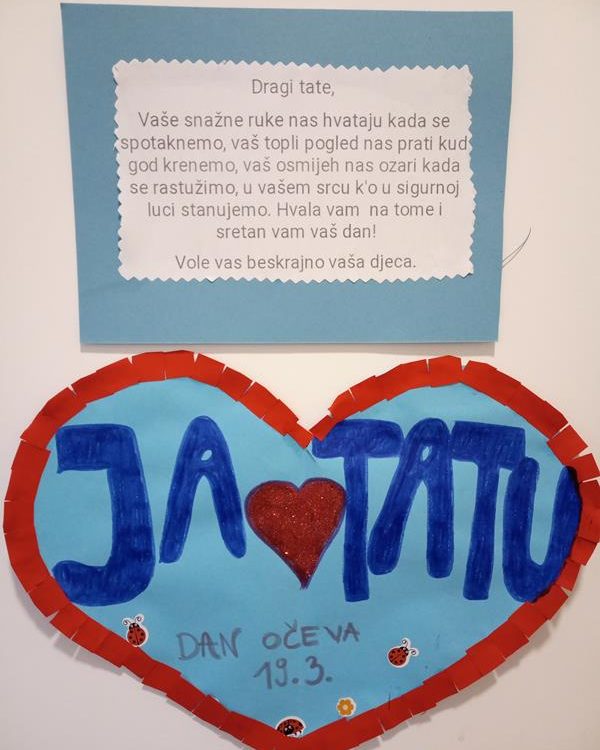 Dragi tate,
Vaše snažne ruke nas hvataju kada se
spotaknemo, vaš topli pogled nas prati kud
god krenemo, vaš osmijeh nas ozari kada
se rastužimo, u vašem srcu k'o u sigurnoj
luci stanujemo. Hvala vam na tome i
sretan vam vaš dan!
Vole vas beskrajno vaša djeca.
JA TATU
DAN OČEVA
19.3.